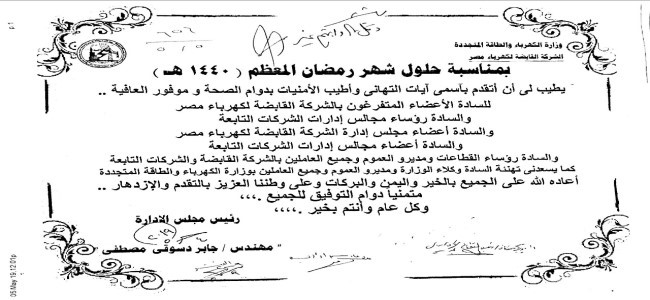 وزارة الكهرباء والطاقة المتجددة
الشركة القابضة لكهرباء مصر
بمناسبة حلول شهر رمضان المعظم ( ١٤٤٠ هـ )
يطيب لى أن أتقدم بأسمى آيات التهانى وأطيب الأمنيات بدوام الصحة و موفور العافية ..
للسادة الأعضاء المتفرغون بالشركة القابضة لكهرباء مصر
والسادة رؤساء مجالس إدارات الشركات التابعة
والسادة أعضاء مجلس إدارة الشركة القابضة لكهرباء مصر
والسادة أعضاء مجالس إدارات الشركات التابعة
والسادة رؤساء القطاعات ومديرو العموم وجميع العاملين بالشركة القابضة والشركات التابعة
كما يسعدنى تهنئة السادة وكلاء الوزارة ومديرو العموم وجميع العاملين بوزارة الكهرباء والطاقة المتجددة
أعاده الله على الجميع بالخير واليمن والبركات وعلى وطننا العزيز بالتقدم والإزدهار ..
متمنياً دوام التوفيق للجميع ،،،،
وكل عام وأنتم بخير ،،،،
رئيس مجلس الادارة
" مهندس / جابر دسوقى مصطفى "
05 May 19, 12:01p
p.1